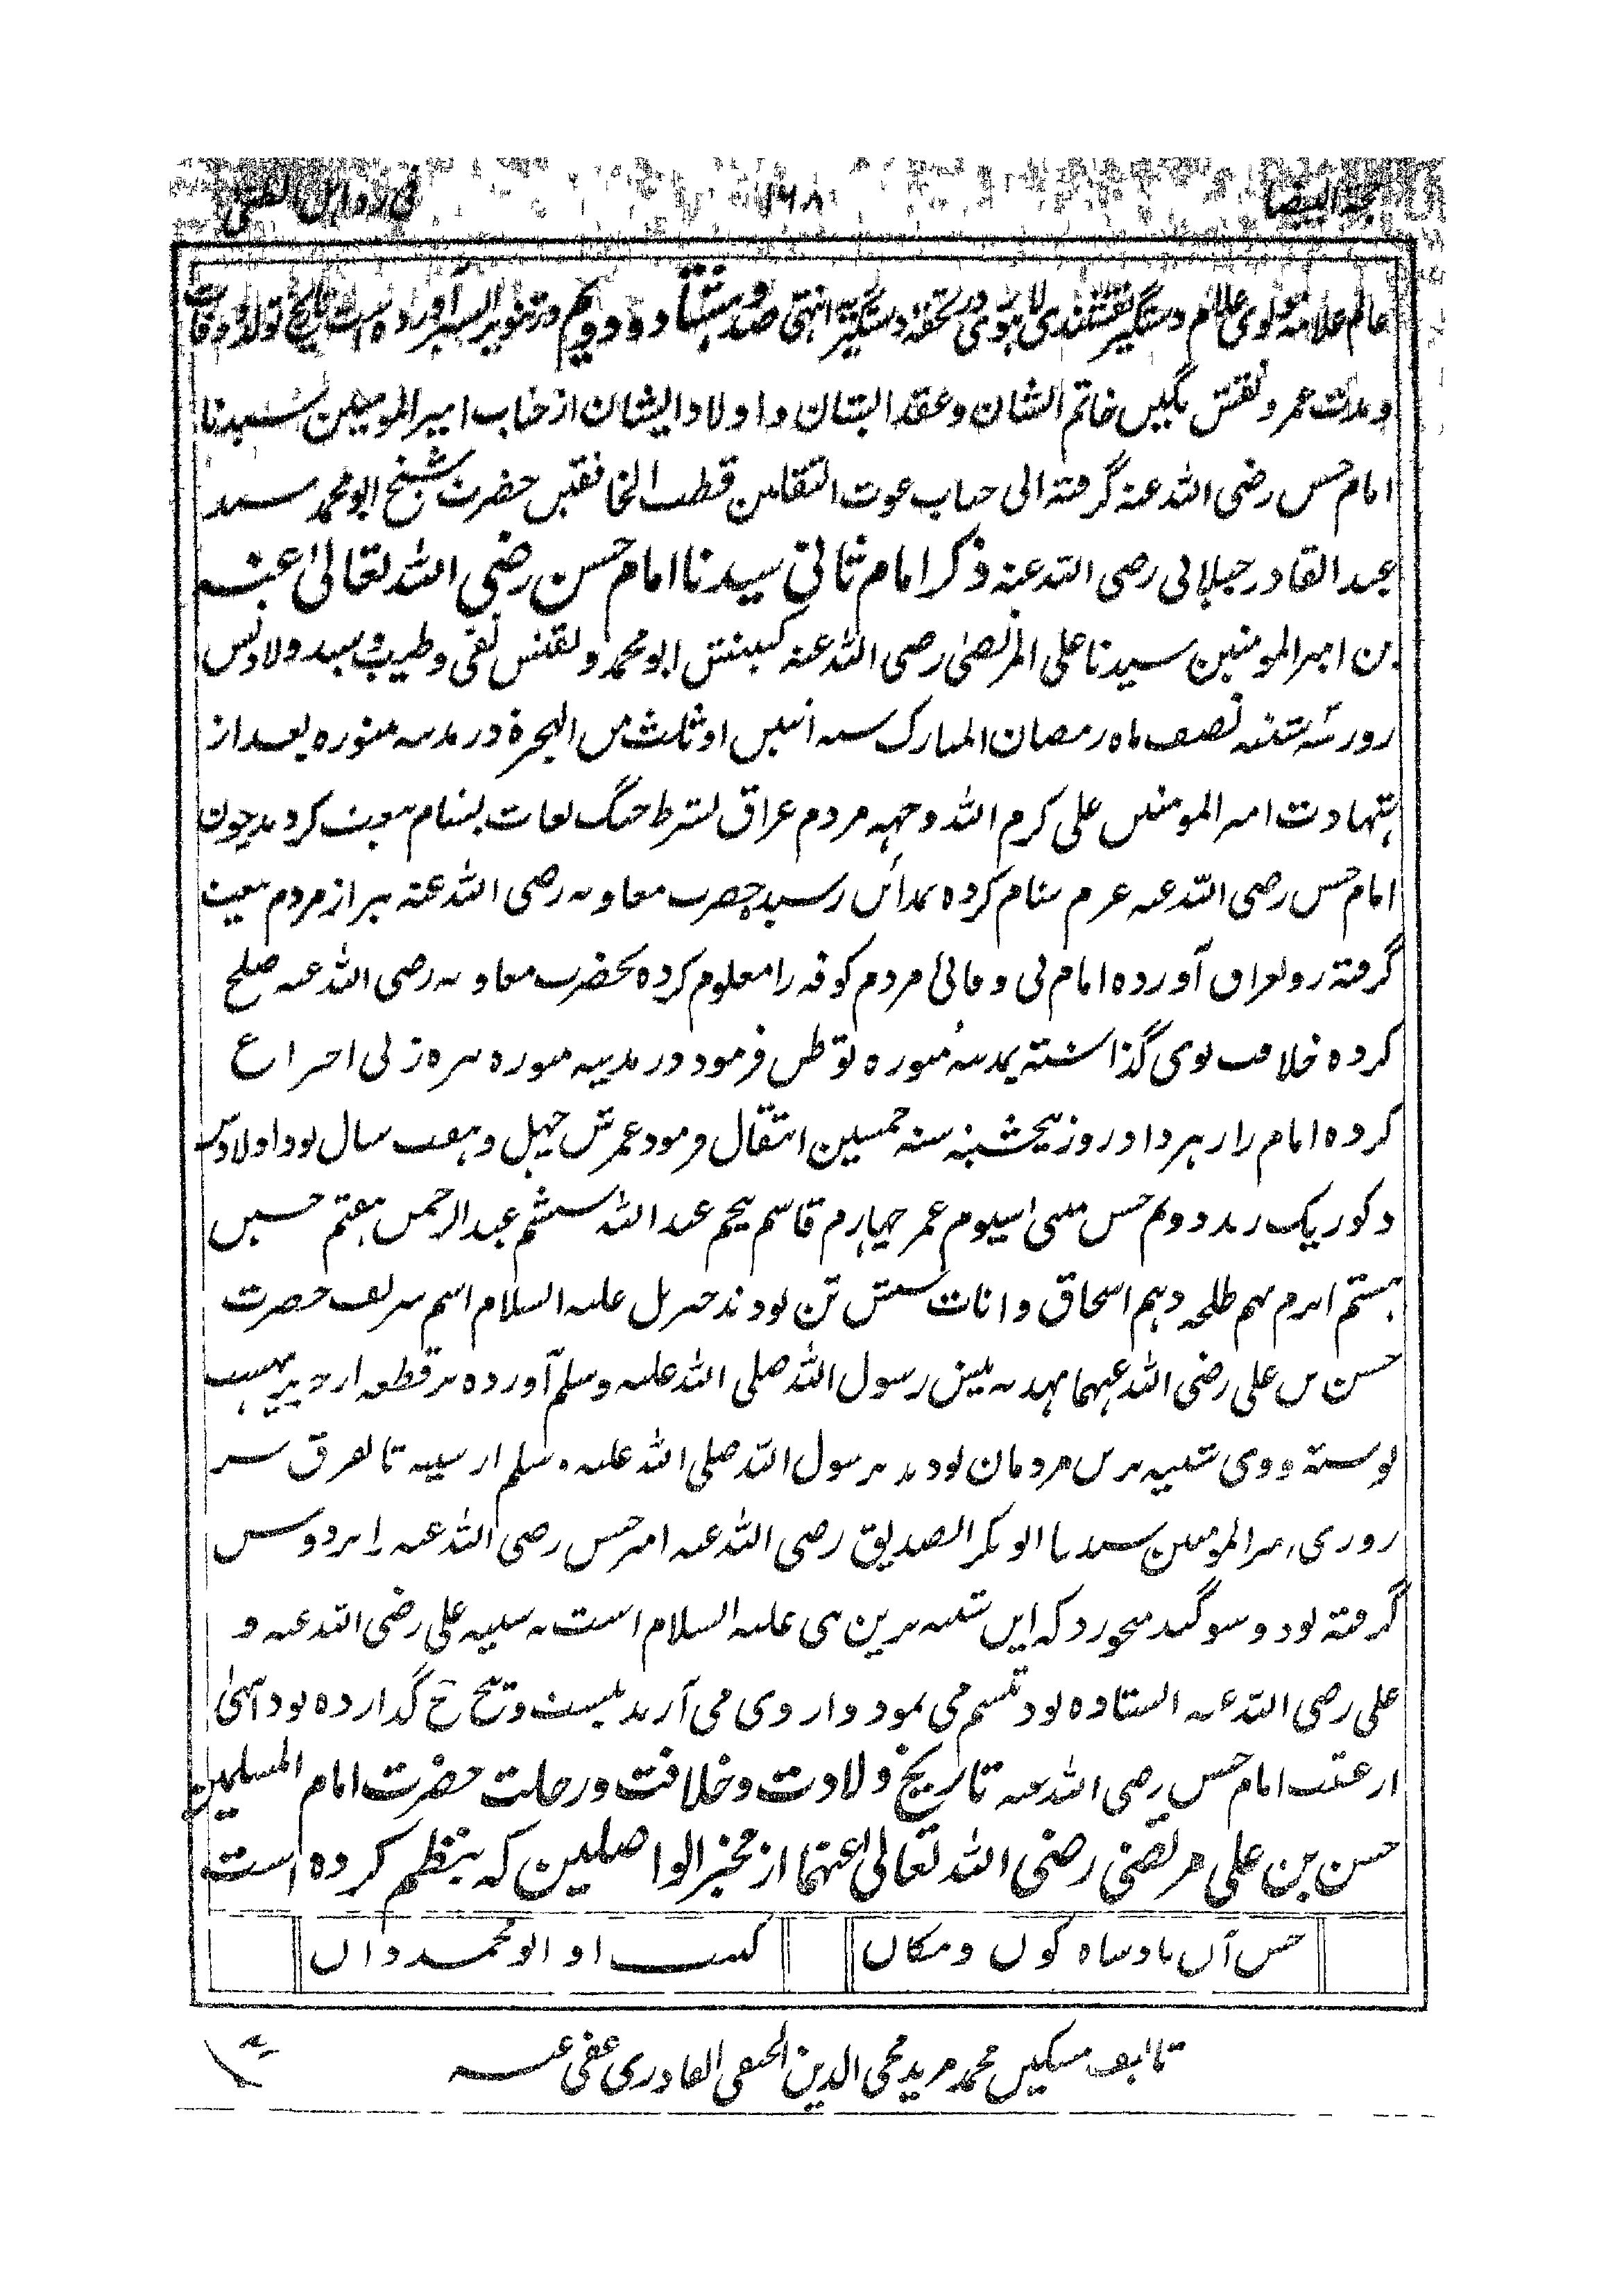 ۱۶۸
عالم علامه مولوی غلام دستگیر نقشبندی لاهوری در تحفه دستگیریه انتهی صد و هشتاد و دویم در تنویر السیر آورده است تاریخ تولد و وفات
و مدت عمر و نقش نگین خاتم الشان و عقد البتان و اولاد ایشان از جناب امیر المومنین سیدنا
امام حسن رضی الله عنه گرفته الی جناب غوث الثقلین قطب الخافقین حضرت شیخ ابو محمد سید
عبد القادر جیلانی رضی الله عنه ذکر امام ثانی سیدنا امام حسن رضی الله تعالیٰ عنه
بن امیر المومنین سیدنا علی المرتضیٰ رضی الله عنه کنیتش ابو محمد و لقبش تقی و طیب و سید ولادتش
روز سه شنبه نصف ماه رمضان المبارک سنه اثنین او ثلث من الهجرة در مدینه منوره بعد از
شهادت امیر المومنین علی کرم الله وجهه مردم عراق بشرط جنگ لغات بشام بیعت کردند چون
امام حسن رضی الله عنه عزم شام کرده بمدائن رسید حضرت معاویه رضی الله عنه نیز از مردم بیعت
گرفته رو بعراق آورده امام بی وفائی مردم کوفه را معلوم کرده بحضرت معاویه رضی الله عنه صلح
کرده خلافت بوی گذاشته بمدینه منوره توطن فرمود در مدینه منوره
کرده امام را زهر داد روز پنجشنبه سنه خمسین انتقال فرمود عمرش چهل و هفت سال بود اولادش
ذکور یک زید دویم حسن مثنی سیوم عمر چهارم قاسم پنجم عبد الله ششم عبد الرحمن هفتم حسین
هشتم نهم طلحه دهم اسحاق و اناث شش تن بودند جبریل علیه السلام اسم شریف حضرت
حسن بن علی رضی الله عنهما بهدیه پیش رسول الله صلی الله علیه وسلم آورده بر قطعه از حریر بهشت
نوشته و وی شبیه ترین مردمان بود به رسول الله صلی الله علیه وسلم از سینه تا بفرق سر
روزی امیر المومنین سیدنا ابو بکر الصدیق رضی الله عنه امیر حسن رضی الله عنه را بر دوش
گرفته بود و سوگند میخورد که این شبیه ترین نبی علیه السلام است نه شبیه علی رضی الله عنه و
علی رضی الله عنه ایستاده بود تبسم می نمود و از وی می آرند بیست و پنج حج گذارده بود انتهیٰ
از عقب امام حسن رضی الله عنه تاریخ ولادت و خلافت و رحلت حضرت امام المسلمین
حسن بن علی مرتضی رضی الله تعالیٰ عنهما از مخبر الواصلین که بنظم کرده است
حسن آن بادشاه کون و مکان کنیت او ابو محمد دان
تالیف مسکین محمد مرید محی الدین الحنفی القادری عفی عنه